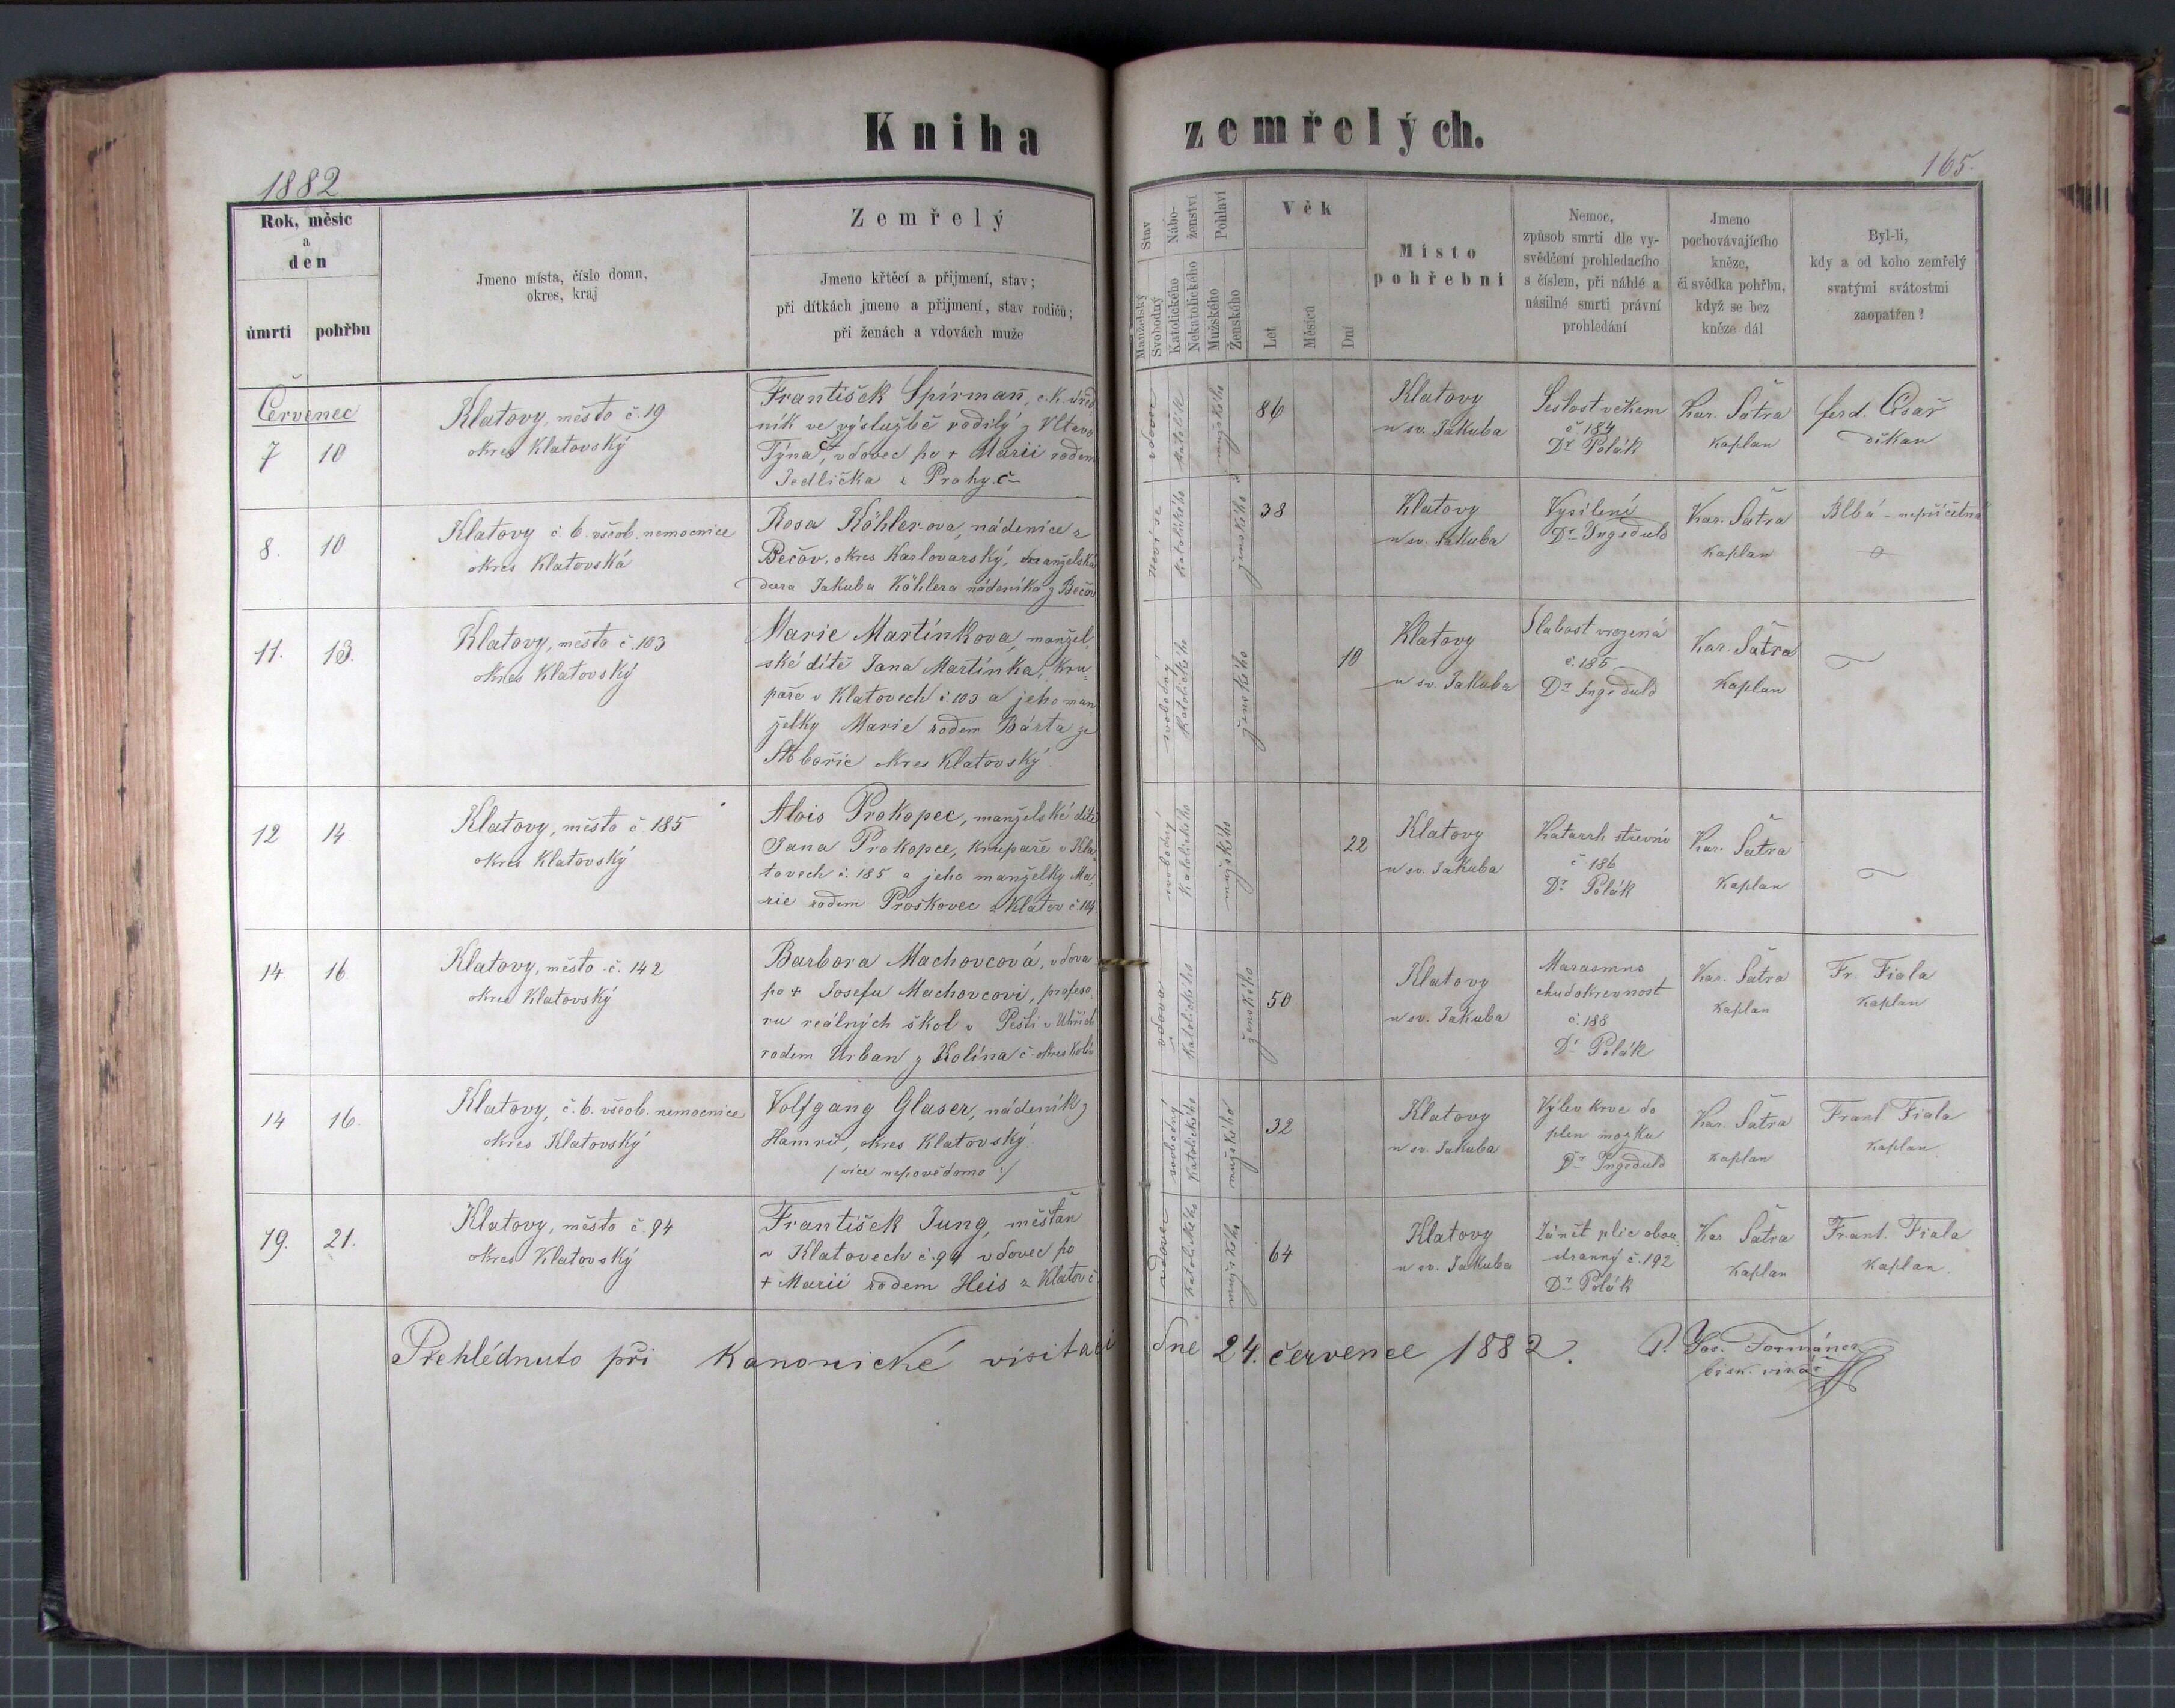 Kniha zemřelých.
1882
165.
Rok, měsíc
a
den
úmrti pohřbu
Jmeno místa, číslo domu,
okres, kraj
Zemřelý
Jmeno křtěcí a přijmení, stav;
při dítkách jmeno a přijmení, stav rodičů;
při ženách a vdovách muže
Stav
Manželský
Svobodný
Nábo-
ženství
Katolického
Nekatolického
Pohlaví
Mužského
Ženského
Věk
Let
Měsíců
Dní
Místo
pohřební
Nemoc,
způsob smrti dle vy-
svědčení prohledacího
s číslem, při náhlé a
násilné smrti právní
prohledání
Jmeno
pochovávajícího
kněze,
či svědka pohřbu,
když se bez
kněze dál
Byl-li,
kdy a od koho zemřelý
svatými svátostmi
zaopatřen?
Červenec
7 10
Klatovy, město č. 19
okres Klatovský
František Spírmañ, c.k. úřed
ník ve výslužbě rodilý z Vltavo
Týna č, vdovec po + Marii rodem
Jedlička z Prahy. č
vdovec
katolík
mužského
86
Klatovy
u sv. Jakuba
Sešlost věkem
č. 184
Dr Polák
Kar. Šatra
Kaplan
ferd. Císař
děkan
8. 10
Klatovy č. 6. všeob. nemocnice
okres Klatovská
Rosa Köhler-ova, nádenice z
Bečov, okres Karlovarský, manželská
dcera Jakuba Köhlera nádeníka z Bečov
neví se
katolického
ženského
38
Klatovy
u sv. Jakuba
Vysílení
Dr Ingeduld
Kar. Šatra
Kaplan
Blbá - nepříčetná
11. 13.
Klatovy, město č. 103
okres Klatovský
Marie Martínkova, manžel
ské dítě Jana Martínka, kru
paře v Klatovech č. 103 a jeho man
želky Marie rodem Bárta ze
Stobořic okres Klatovský.
svobodný
Katolického
ženského
10
Klatovy
u sv. Jakuba
Slabost vrozená
č. 185
Dr Ingeduld
Kar. Šatra
Kaplan
12 14
Klatovy, město č. 185
okres Klatovský
Alois Prokopec, manželské dítě
Jana Prokopce, krupaře v Kla
tovech č. 185 a jeho manželky Ma
rie rodem Proškovec z Klatov č. 104
svobodný
Katolického
mužského
22
Klatovy
u sv. Jakuba
Katarrh střevní
č 186
Dr Polák
Kar. Šatra
Kaplan
14. 16
Klatovy, město č. 142
okres Klatovský
Barbora Machovcová, vdova
po + Josefu Machovcovi, profeso
ru reálných škol v Pešti v Uhřích
rodem Urban z Kolína č okres Kolín
vdova
katolického
ženského
50
Klatovy
u sv. Jakuba
Marasmus
chudokrevnost
č. 188
Dr Polák
Kar. Šatra
Kaplan
Fr. Fiala
Kaplan
14 16.
Klatovy, č. 6. všeob. nemocnice
okres Klatovský
Volfgang Glaser, nádeník z
Hamrů, okres Klatovský.
/: více nepovědomo :/
svobodný
katolického
mužského
32
Klatovy
u sv. Jakuba
Výlev krve do
plen mozku
Dr Ingeduld
Kar. Šatra
Kaplan
Frant Fiala
Kaplan.
19. 21.
Klatovy, město č. 94
okres Klatovský
František Jung, měšťan
v Klatovech č. 94 vdovec po
+ Marii rodem Heis z Klatov č.
vdovec
katolického
mužského
64
Klatovy
u sv. Jakuba
Zánět plic obou
stranný č. 192
Dr Polák
Kar Šatra
Kaplan
Frant. Fiala
Kaplan.
Přehlédnuto při kanonické visitaci dne 24. července 1882. P. Jos. Formánek
bisk. vikář